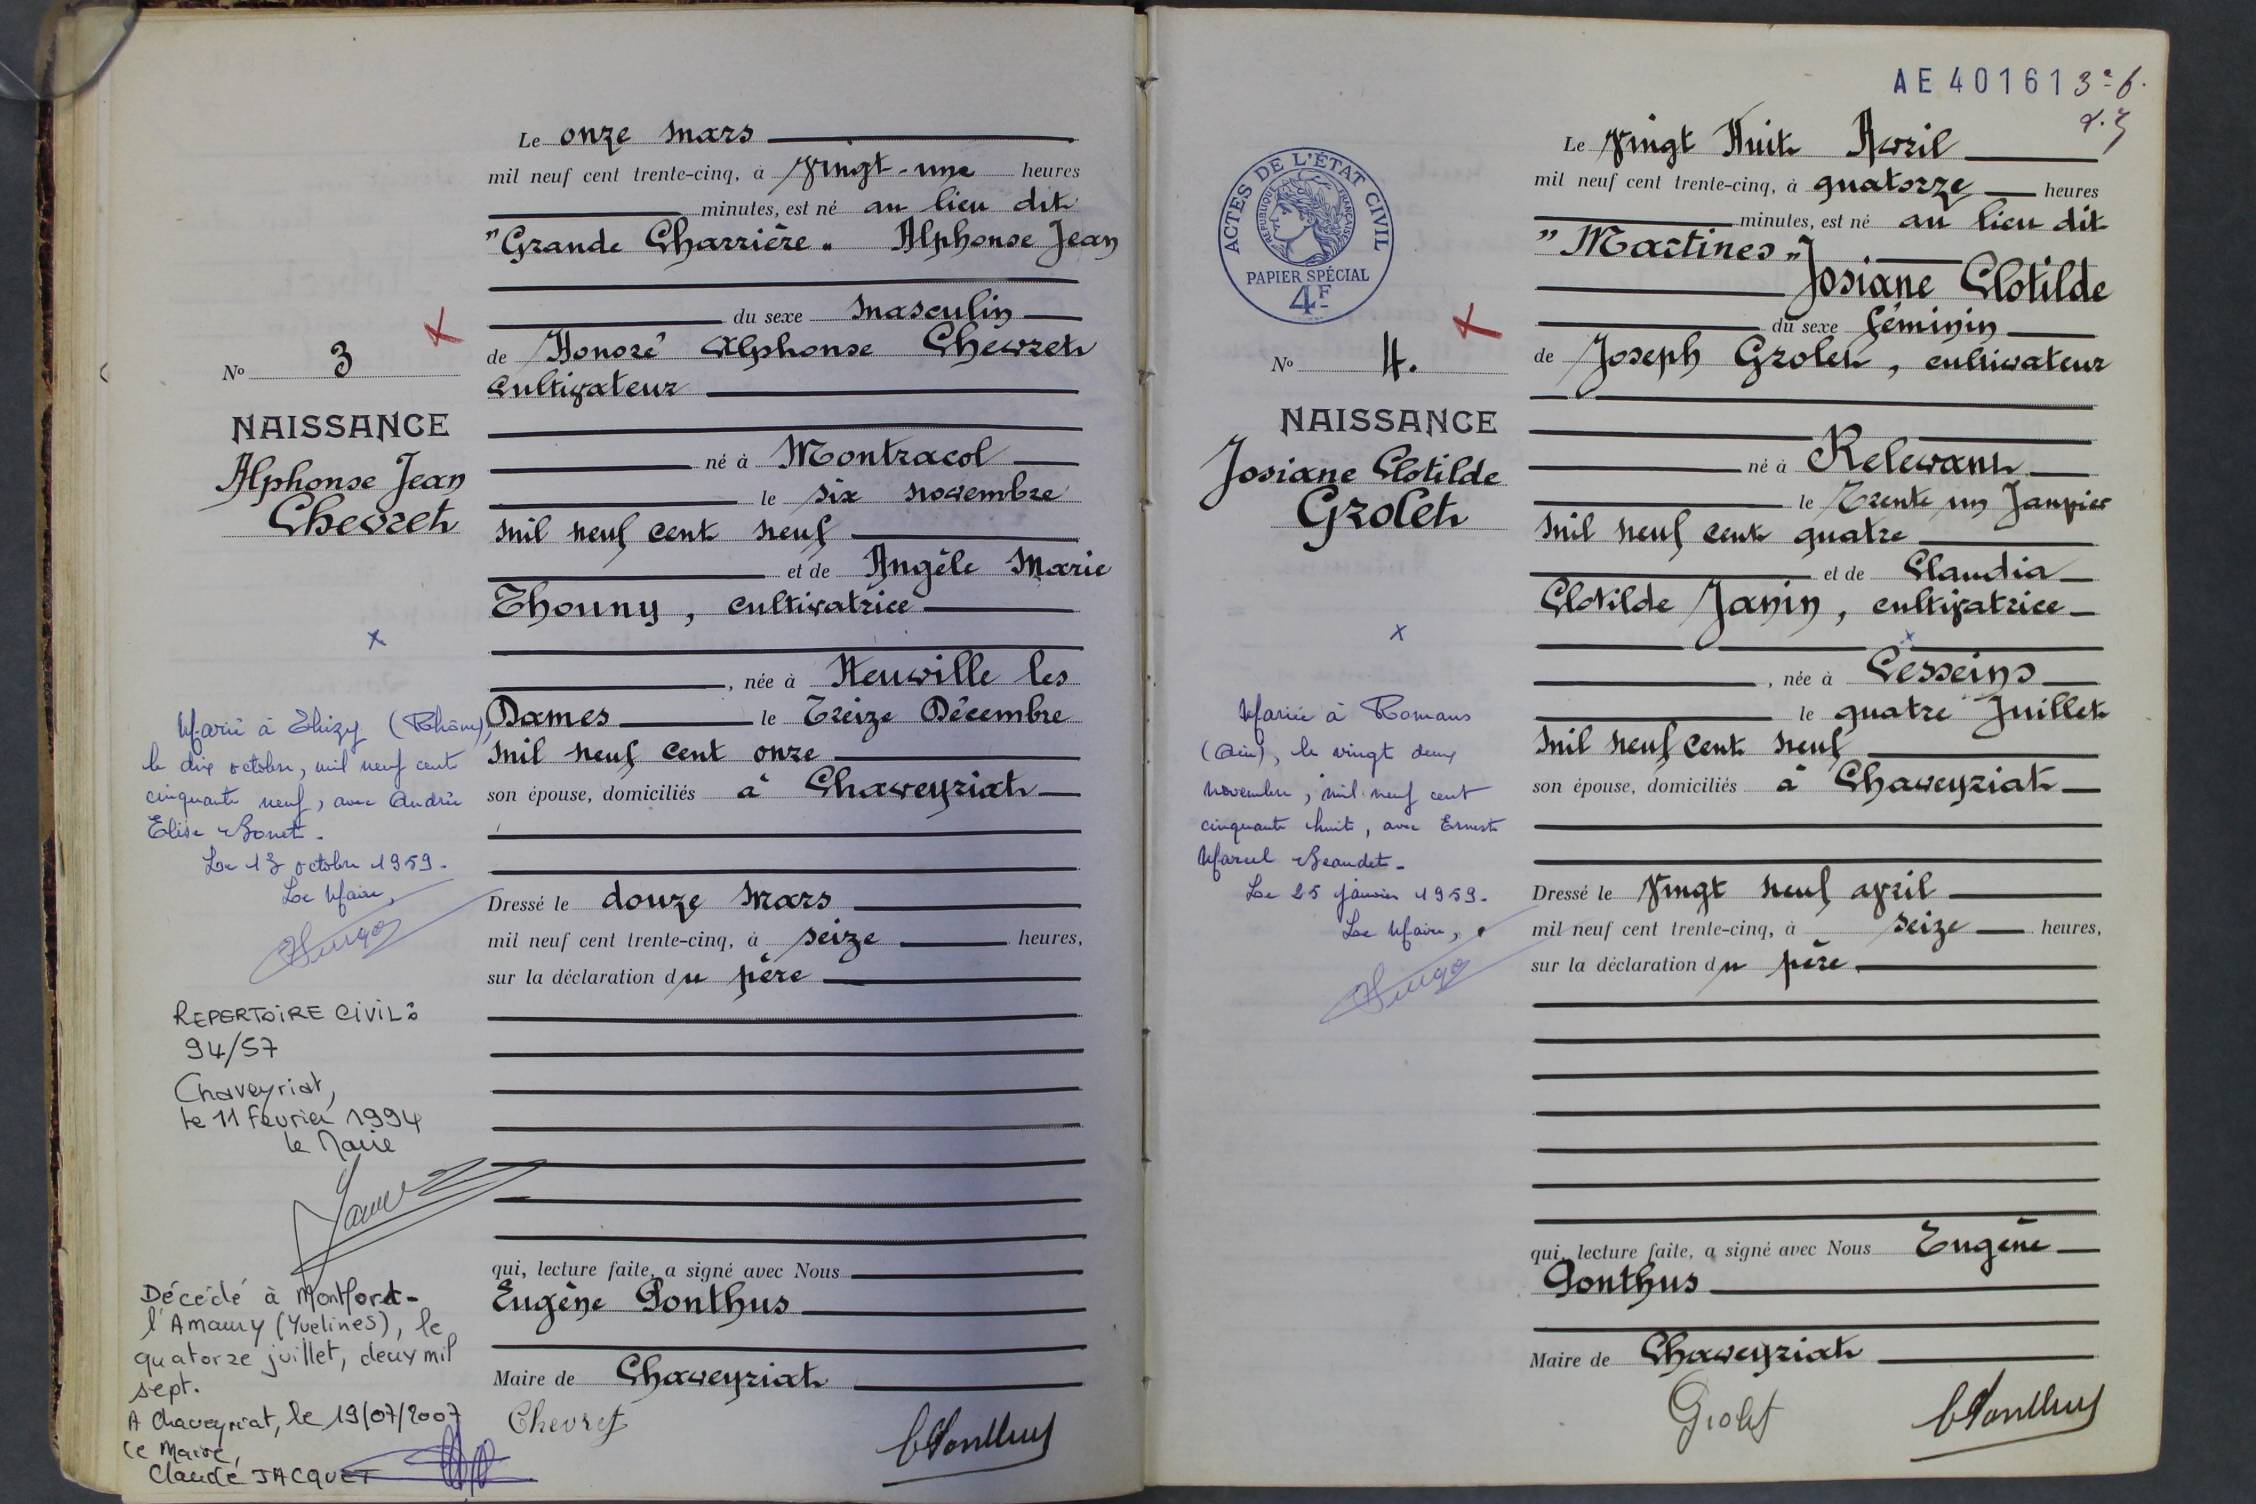 Le onze mars
mil neuf cent trente-cinq, à vingt-une heures
minutes, est né au lieu dit
"Grande Charrière" Alphonse Jean
du sexe masculin
de Honoré Alphonse Chevret
cultivateur
né à Montracol
le six novembre
mil neuf cent neuf
et de Angèle Marie
Thouny, cultivatrice
, née à Neuville les
Dames le Treize Décembre
mil neuf cent onze
son épouse, domiciliés à Chaveyriat
Dressé le douze mars
mil neuf cent trente-cinq, à seize heures,
sur la déclaration du père
qui, lecture faite, a signé avec Nous
Eugène Ponthus
Maire de Chaveyriat
Chevret
EPonthus
No 3
NAISSANCE
Alphonse Jean
Chevret
Marié à Thizy (Rhône),
le dix octobre, mil neuf cent
cinquante neuf, avec Andrée
Elise Bonet.
Le 13 octobre 1959.
Le Maire,
REPERTOIRE CIVIL:
94/57
Chaveyriat,
le 11 février 1994
le Maire
Décédé à Montfort-
l'Amaury (Yvelines), le
quatorze juillet, deux mil
sept.
A Chaveyriat, le 19/07/2007
Le Maire,
Claude JACQUET
AE 401613 2e f.
ACTES DE L'ÉTAT CIVIL
RÉPUBLIQUE FRANÇAISE
PAPIER SPÉCIAL
4F
No 4.
NAISSANCE
Josiane Clotilde
Grolet
Mariée à Romans
(Ain), le vingt deux
novembre, mil neuf cent
cinquante huit, avec Ernest
Marcel Beaudet.
Le 25 janvier 1959.
Le Maire,
Le Vingt Huit Avril
mil neuf cent trente-cinq, à quatorze heures
minutes, est né au lieu dit
"Martines"
Josiane Clotilde
du sexe féminin
de Joseph Grolet, cultivateur
né à Relevant
le Trente un Janvier
mil neuf cent quatre
et de Claudia
Clotilde Janin, cultivatrice
, née à Cesseins
le quatre Juillet
mil neuf cent neuf
son épouse, domiciliés à Chaveyriat
Dressé le Vingt neuf avril
mil neuf cent trente-cinq, à seize heures,
sur la déclaration du père
qui, lecture faite, a signé avec Nous Eugène
Ponthus
Maire de Chaveyriat
Grolet
EPonthus